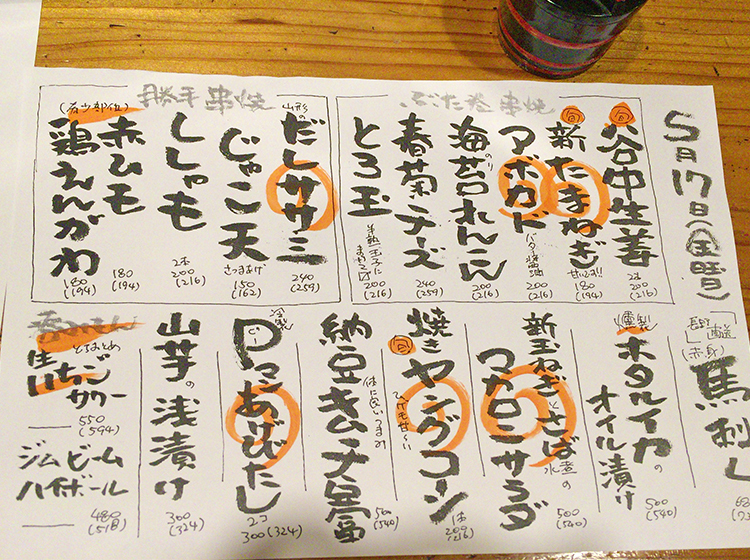 5月17日(金曜)
ぶた巻串焼
旬
谷中生姜
2本
200
(216)
旬
新たまねぎ
甘いです!!
180
(194)
アボカド
バター醤油
200
(216)
海苔れんこん
(のり)
200
(216)
春菊チーズ
240
(259)
とろ玉
半熟玉子に
200
(216)
勝手串焼
山形の
だしササミ
240
(259)
じゃこ天
さつまあげ
150
(162)
ししゃも
2本
200
(216)
赤ひも
180
(194)
(希少部位)
鶏えんがわ
180
(194)
(赤身)
馬刺し
燻製
ホタルイカの
オイル漬け
500
(540)
新玉ねぎとさば水煮の
マカロニサラダ
500
(540)
旬
焼きヤングコーン
ひげも甘〜い
1本
200
(216)
納豆キムチ
体に良いつまみ
500
(540)
冷製
Pこあげびたし
ピー
2コ
300(324)
山芋の浅漬け
300
(324)
とちおとめ
生いちご
サワー
550
(594)
ジムビーム
ハイボール
480
(518)